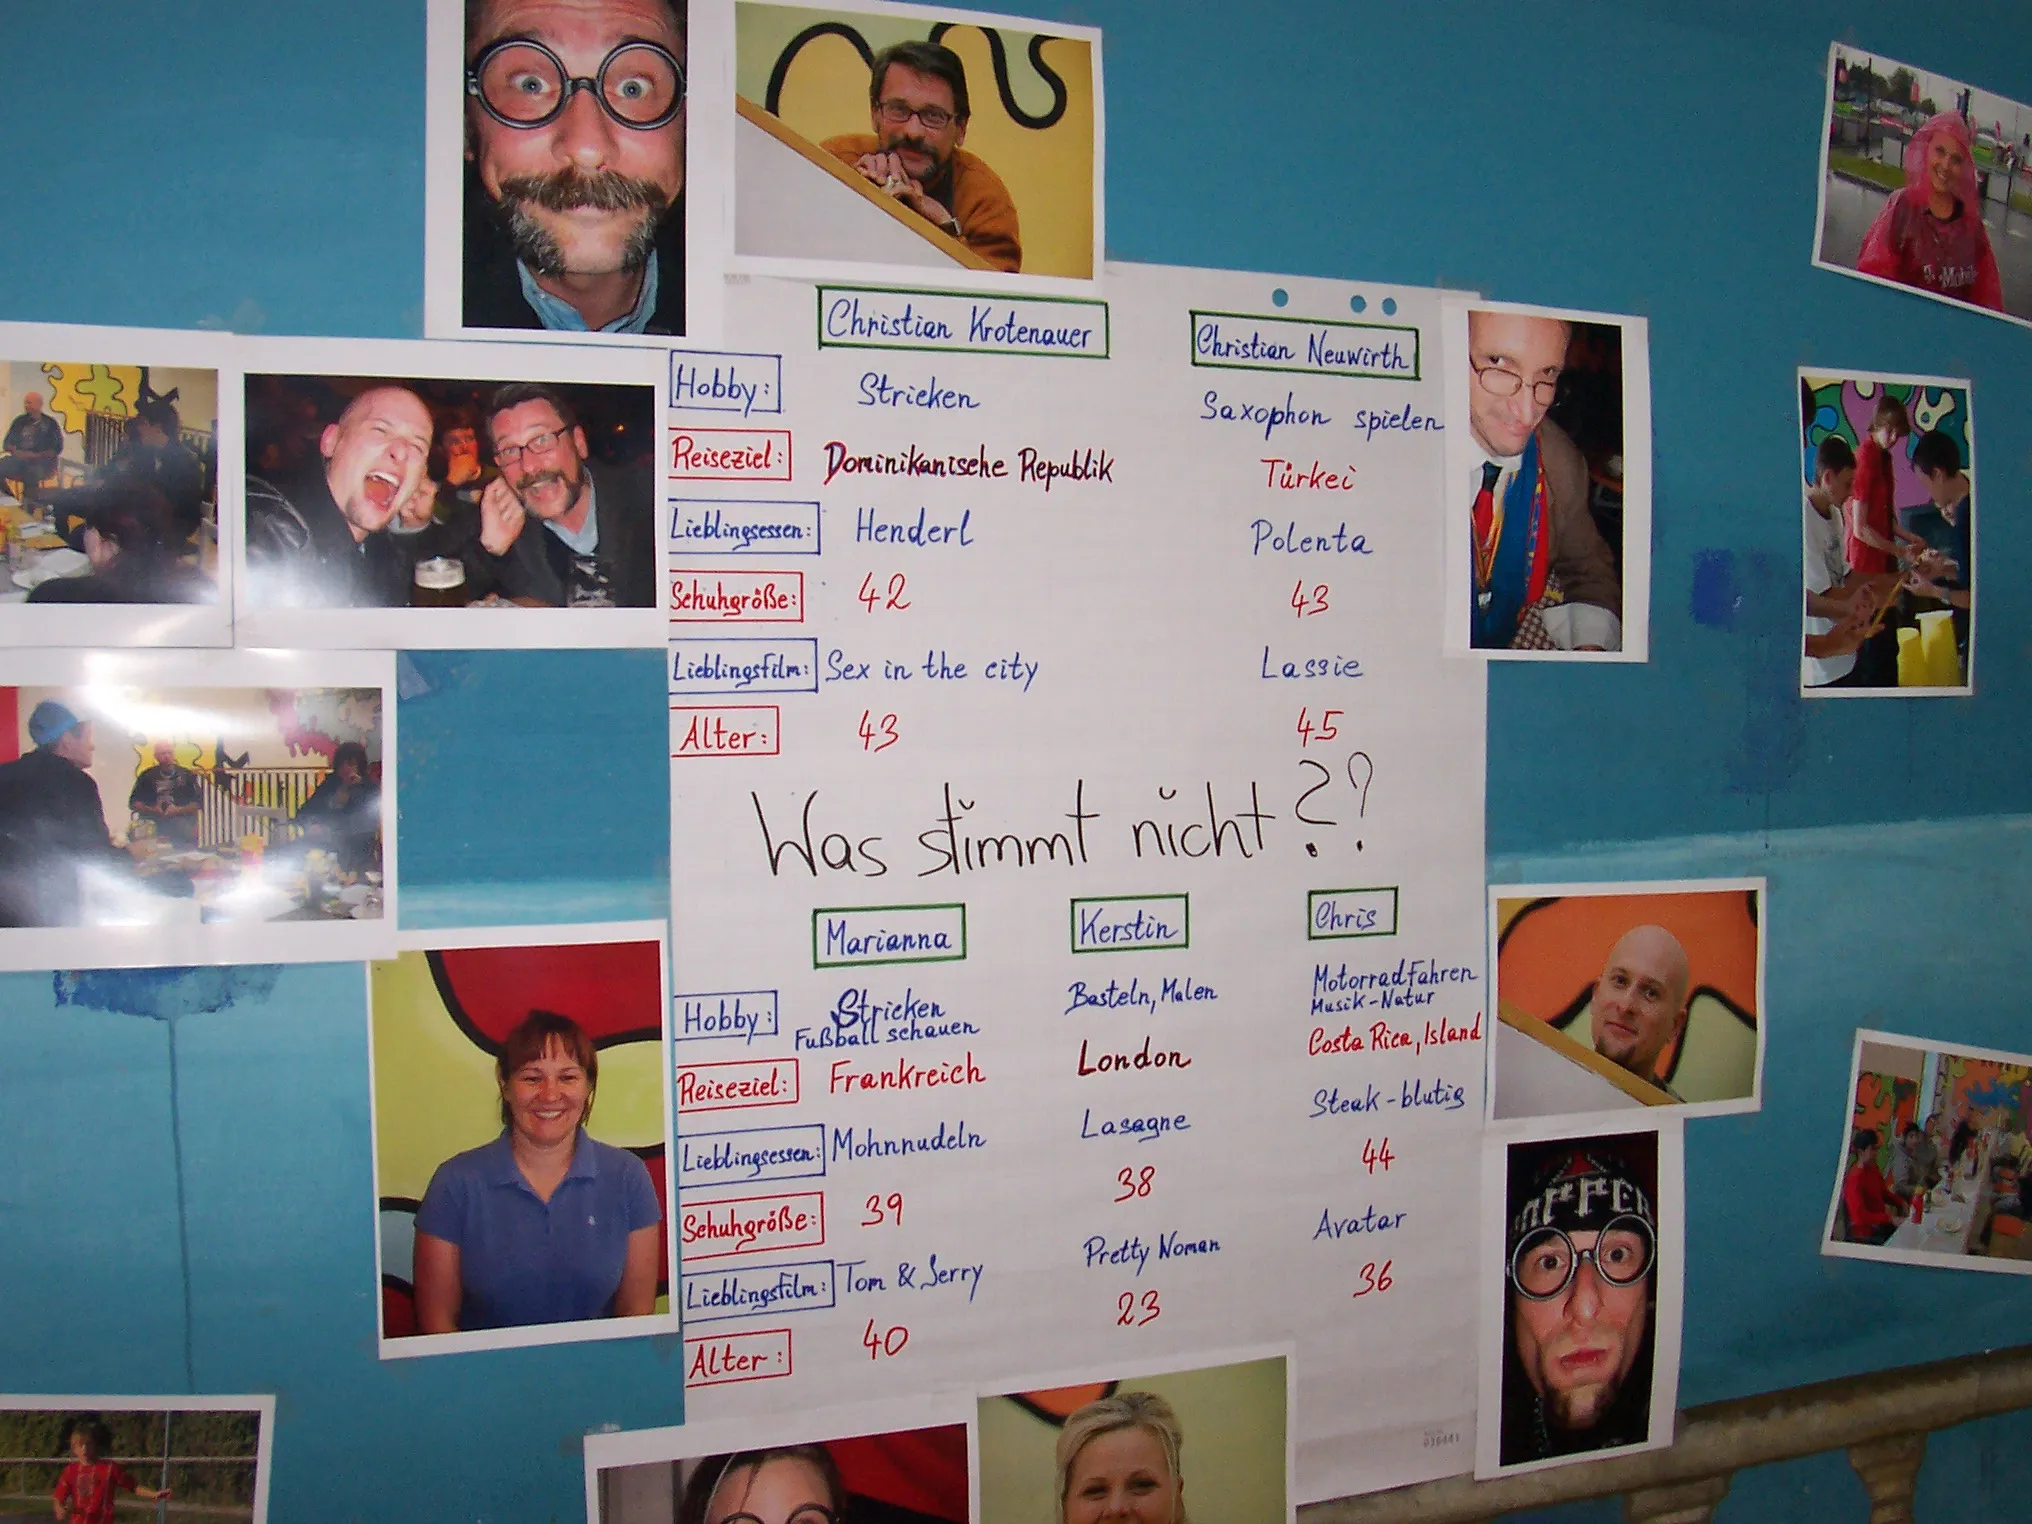 Christian Krotenauer
Christian Neuwirth
Hobby: Stricken Saxophon spielen
Reiseziel: Dominikanische Republik Türkei
Lieblingsessen: Henderl Polenta
Schuhgröße: 42 43
Lieblingsfilm: Sex in the city Lassie
Alter: 43 45
Was stimmt nicht??
Marianna Kerstin Chris
Hobby: Stricken Basteln, Malen Motorradfahren
Fußball schauen Musik-Natur
Reiseziel: Frankreich London Costa Rica, Island
Lieblingsessen: Mohnnudeln Lasagne Steak-blutig
Schuhgröße: 39 38 44
Lieblingsfilm: Tom & Jerry Pretty Noman Avatar
Alter: 40 23 36